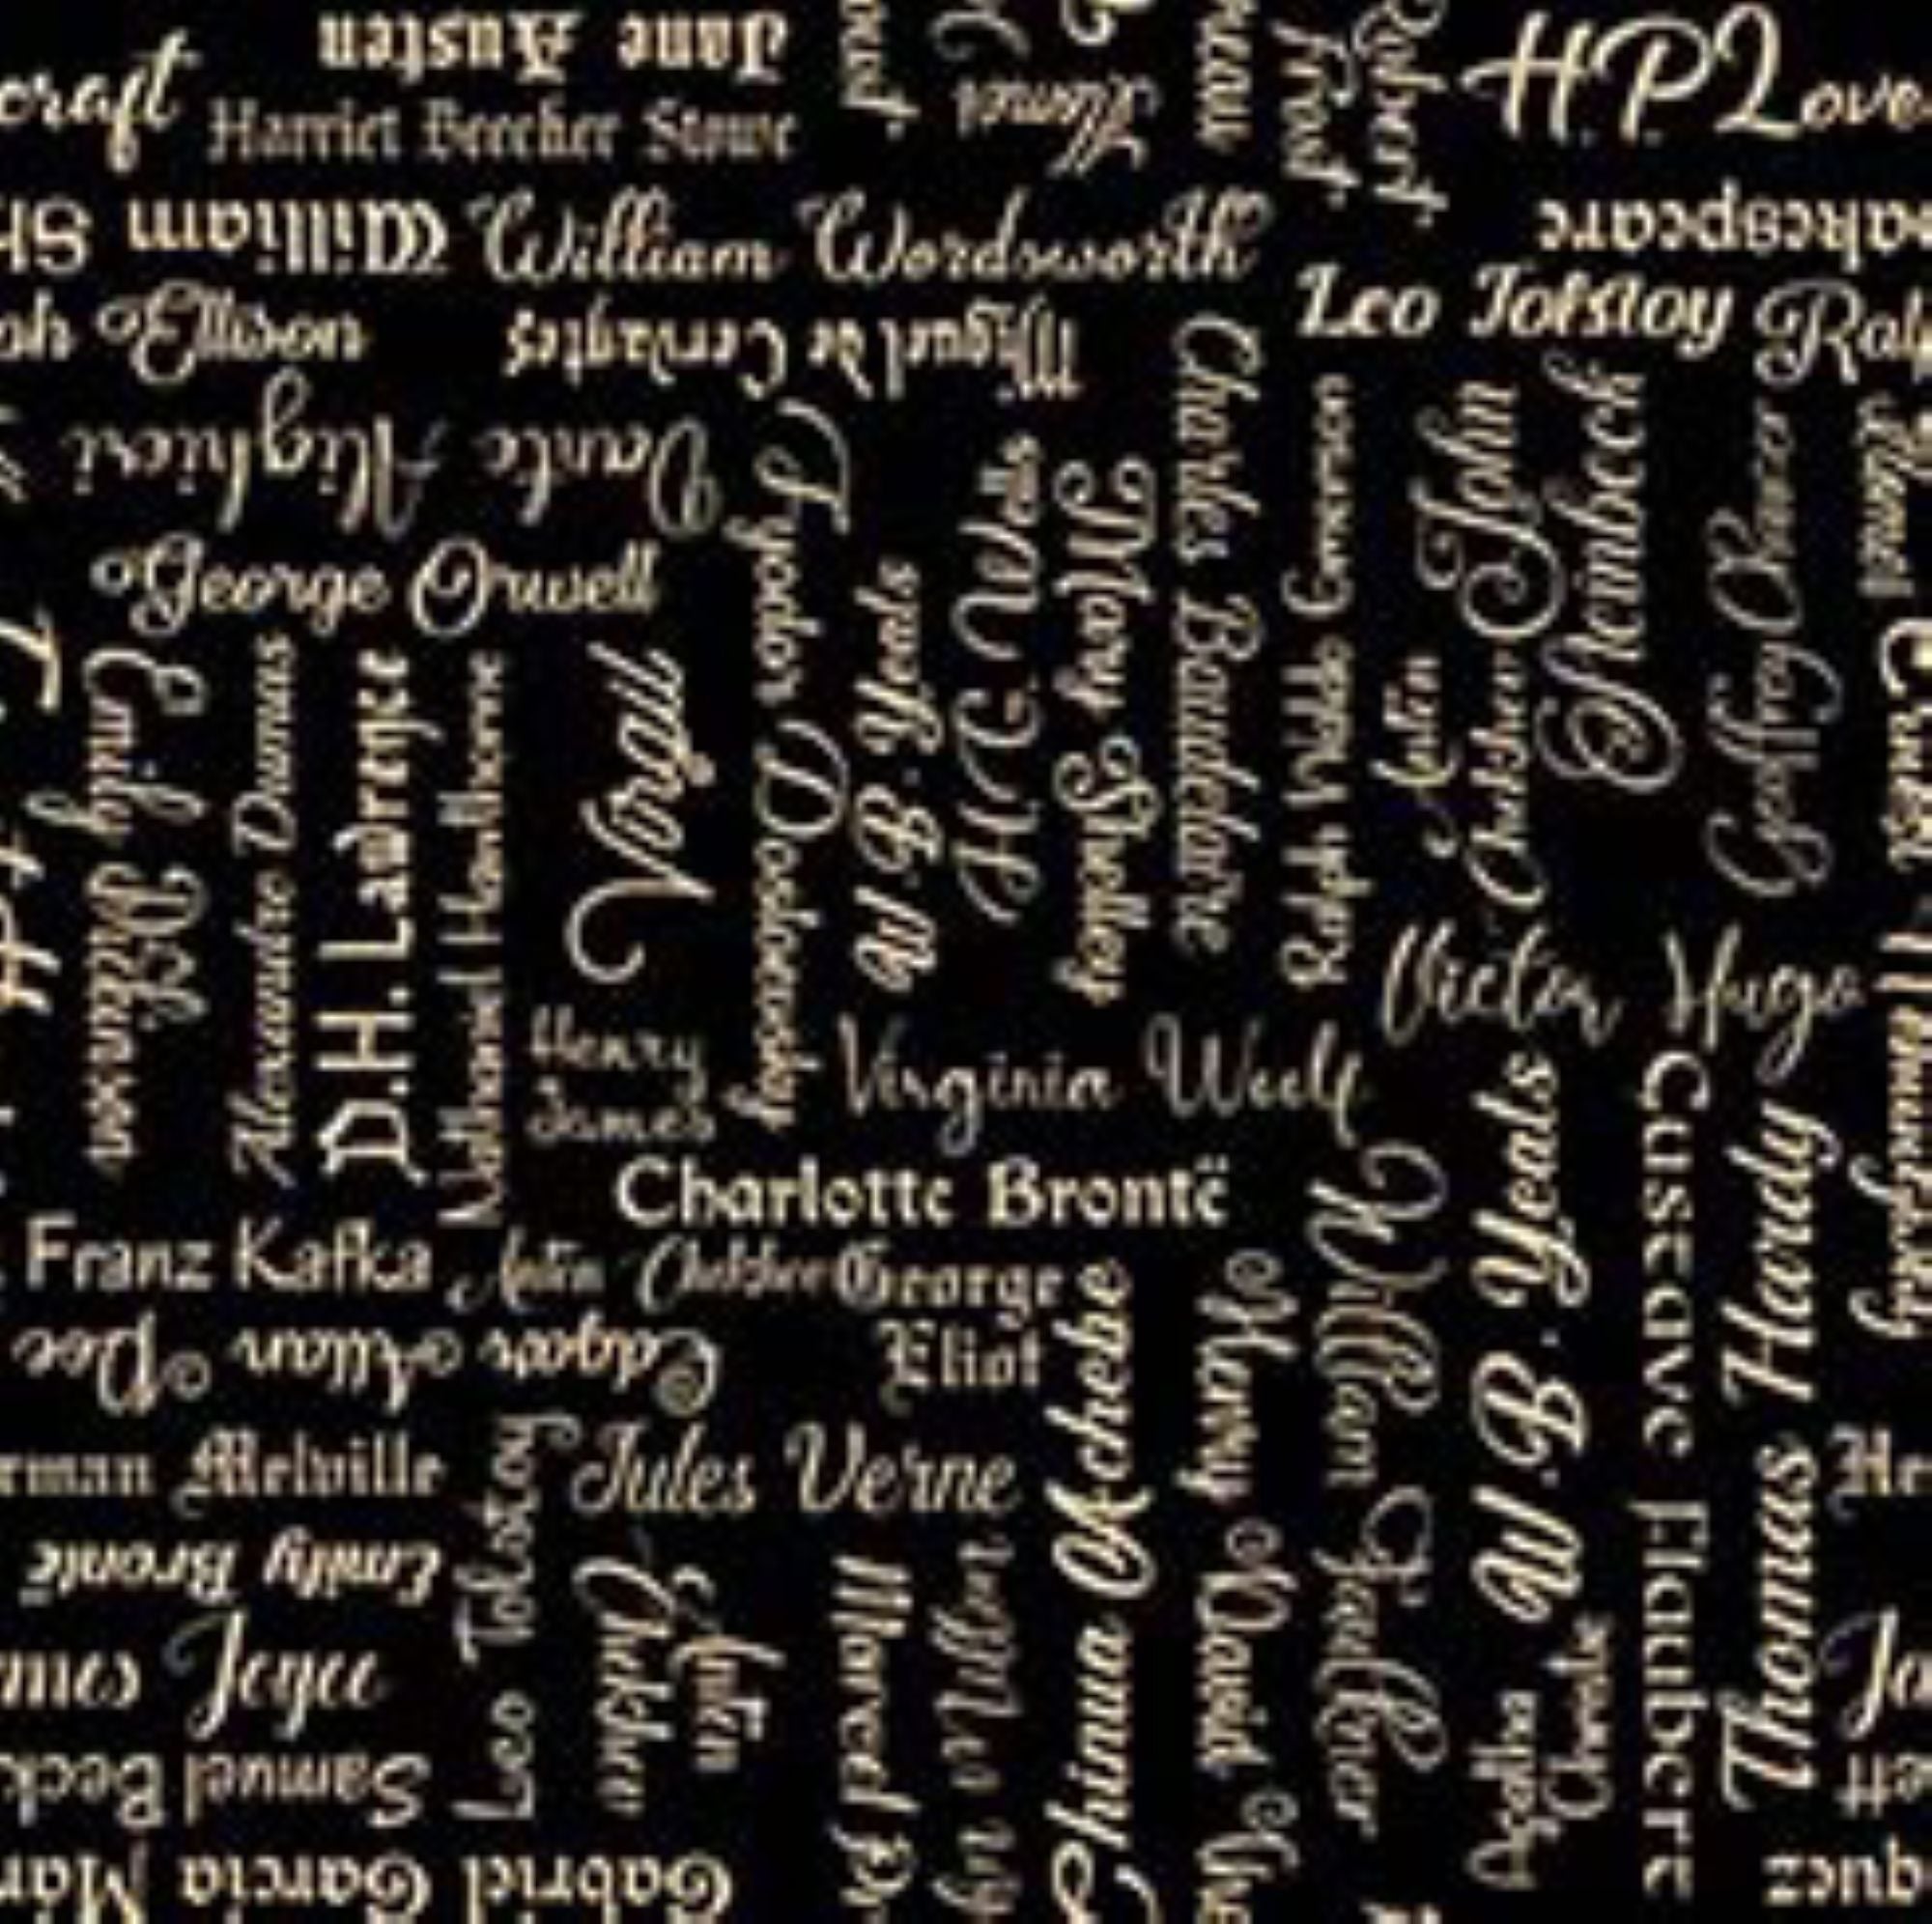 Jane Austen
craft
Harriet Beecher Stowe
Robert
Frost
H.P. Love
William Sh
William Wordsworth
akespeare
Leo Tolstoy
ph Ellison
Miguel de Cervantes
Ral
Dante Alighieri
George Orwell
Charles Baudelaire
John
Steinbeck
Geoffrey Chaucer
Fyodor Dostoevsky
W. B. Yeats
H G Wells
Mary Shelley
Ralph Waldo Emerson
Emily Dickinson
Alexandre Dumas
D.H. Lawrence
Nathaniel Hawthorne
Virgil
Victor Hugo
Henry
James
Virginia Woolf
Charlotte Brontë
Franz Kafka
George
Eliot
Edgar Allan Poe
William Faulkner
W. B. Yeats
Gustave Flaubert
Thomas Hardy
rman Melville
He
Jules Verne
Chinua Achebe
Henry David
Emily Brontë
Leo Tolstoy
mes Joyce
Jo
Agatha
Christie
Samuel Beck
ett
Marcel Pr
Gabriel Garcia Már
quez